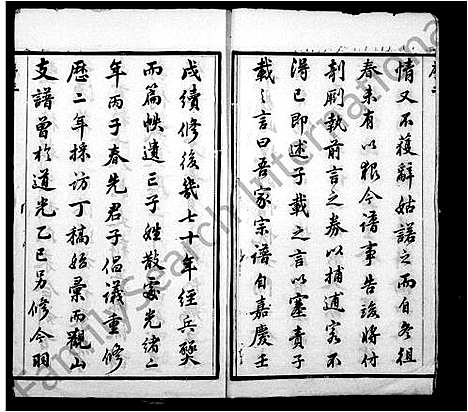 序二
情又不獲辭姑諾之而自冬徂
春未有以報今譜事告竣將付
剞劂執前言之券以捕逋客不
得已即述子載之言以塞責子
載之言曰吾家宗譜自嘉慶壬
戌續修後幾七十年經兵燹
而篇帙遺亡子姓散處光緒二
年丙子春先君子倡議重修
歷二年採訪丁稿始彙而觀山
支譜曾於道光乙巳另修今羽
FamilySearch International